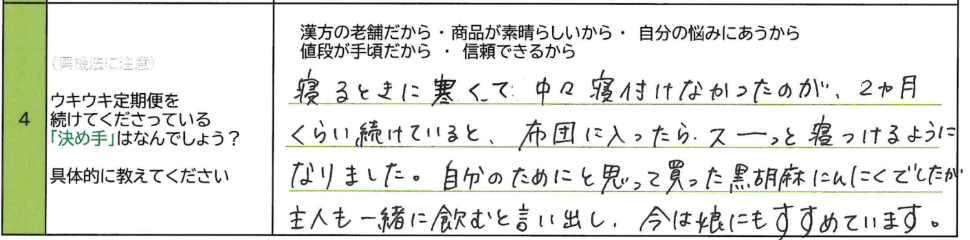 漢方の老舗だから・商品が素晴らしいから・ 自分の悩みにあうから
値段が手頃だから ・ 信頼できるから
(薬機法に注意)
4
ウキウキ定期便を
続けてくださっている
「決め手」はなんでしょう？
具体的に教えてください
寝るときに寒くて 中々寝付けなかったのが、2ヶ月
くらい続けていると、布団に入ったら、スーっと寝つけるように
なりました。自分のためにと思って買った黒胡麻にんにくでしたが
主人も一緒に飲むと言い出し、今は娘にもすすめています。